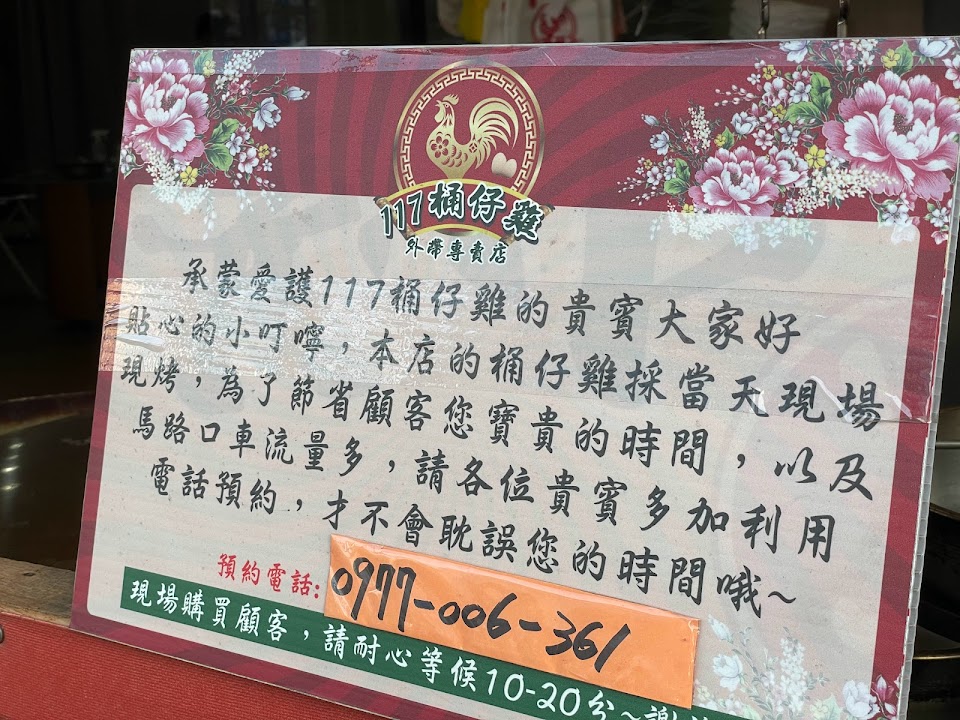 117桶仔雞
外帶專賣店
承蒙愛護117桶仔雞的貴賓大家好
貼心的小叮嚀，本店的桶仔雞採當天現場
現烤，為了節省顧客您寶貴的時間，以及
馬路口車流量多，請各位貴賓多加利用
電話預約，才不會耽誤您的時間哦~
預約電話:0977-006-361
現場購買顧客，請耐心等候10-20分~謝